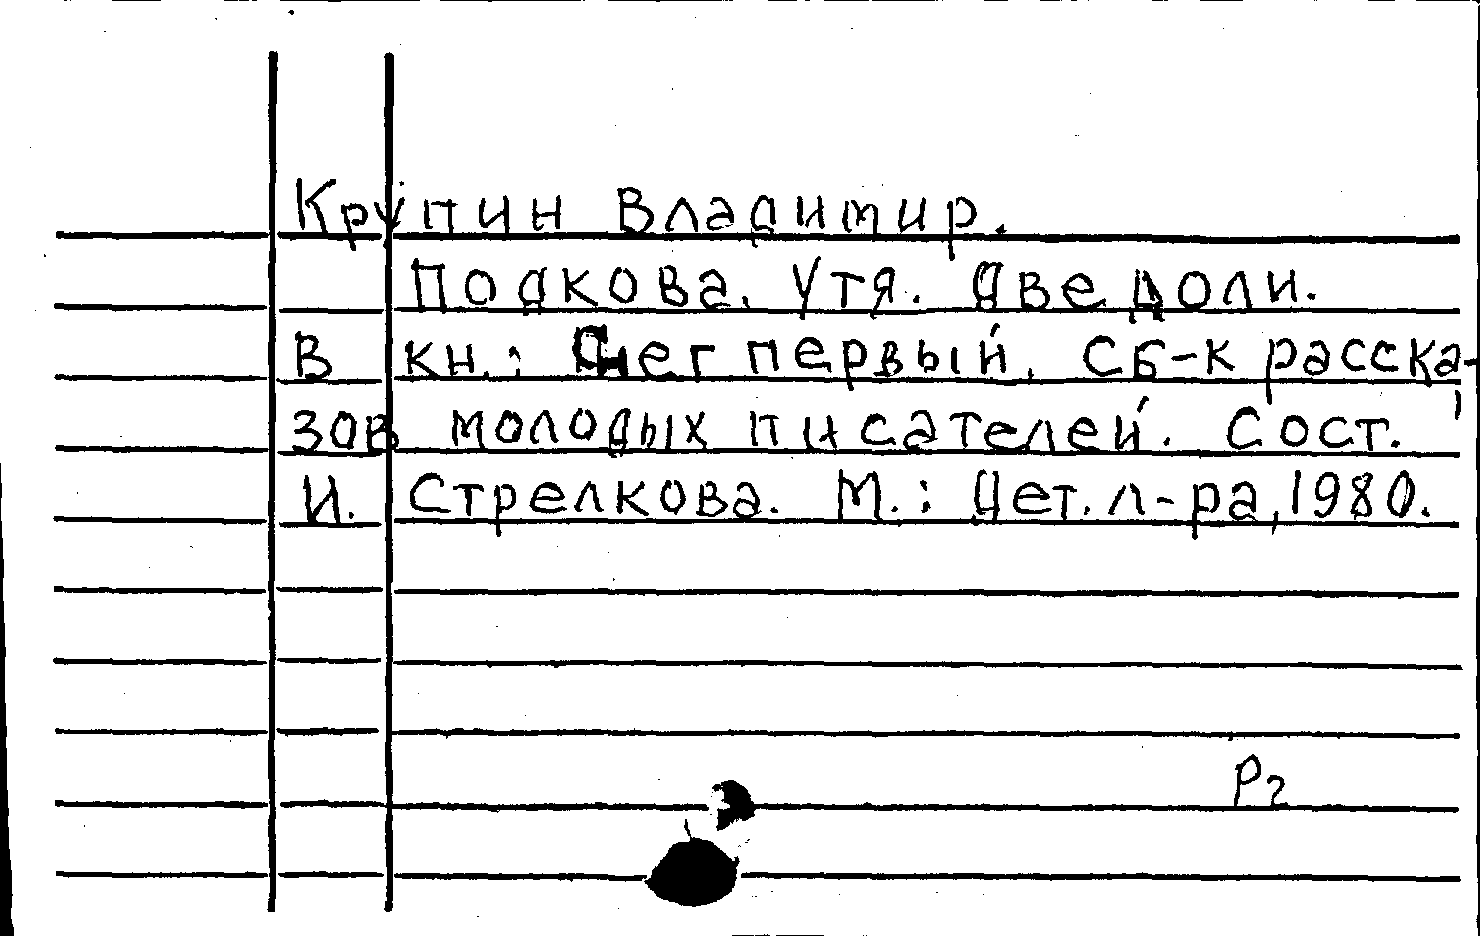 Крупин Владимир.
Подкова. Утя. Две доли.
В кн.: Снег первый. Сб-к расска-
зов молодых писателей. Сост.
И. Стрелкова. М.: Дет. л-ра, 1980.
Р2